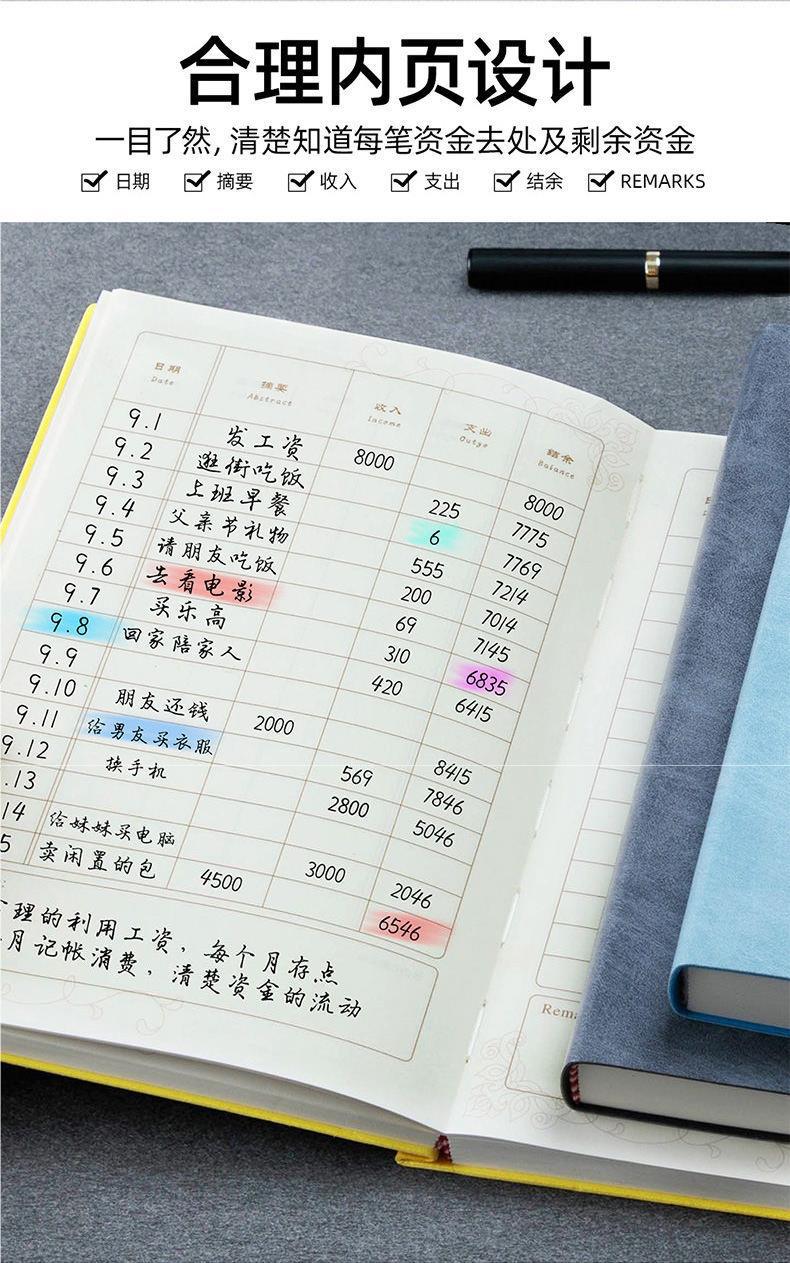 合理内页设计
一目了然, 清楚知道每笔资金去处及剩余资金
日期 摘要 收入 支出 结余 REMARKS
日期 摘要 收入 支出 结余
Date Abstract Income Outgo Balance
9.1 发工资 8000 8000
9.2 逛街吃饭 225 7775
9.3 上班早餐 6 7769
9.4 父亲节礼物 555 7214
9.5 请朋友吃饭 200 7014
9.6 去看电影 69 7145
9.7 买乐高 310 6835
9.8 回家陪家人 420 6415
9.9
9.10 朋友还钱 2000 8415
9.11 给男友买衣服 569 7846
9.12 换手机 2800 5046
.13
14 给妹妹买电脑 3000 2046
5 卖闲置的包 4500 6546
理的利用工资，每个月存点
月记帐消费，清楚资金的流动
Rem